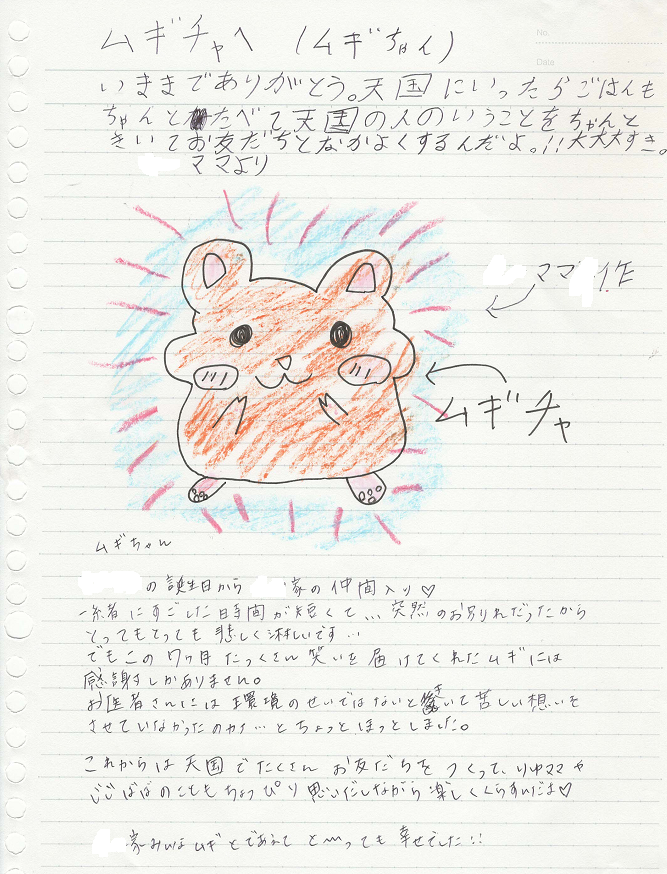 No.
Date
ムギチャへ (ムギちゃん)
いままでありがとう。天国にいったらごはんも
ちゃんとたべて天国の人のいうことをちゃんと
きいてお友だちとなかよくするんだよ。!!大大大すき。
ママより
ママ作
ムギチャ
ムギちゃん
の誕生日から 家の仲間入り♡
一緒にすごした時間が短くて... 突然のお別れだったから
とってもとっても悲しく淋しいです...
でもこの7ヶ月たっくさん笑いを届けてくれたムギには
感謝しかありません。
お医者さんには環境のせいではないと聞いて苦しい想いを
させていなかったのカナ...とちょっとほっとしました。
これからは天国でたくさんお友だちをつくって、りゆママや
じじばばのこともちょっぴり思いだしながら楽しくくらすんだよ♡
家みんなムギとであえて と〜っても幸せでした!!